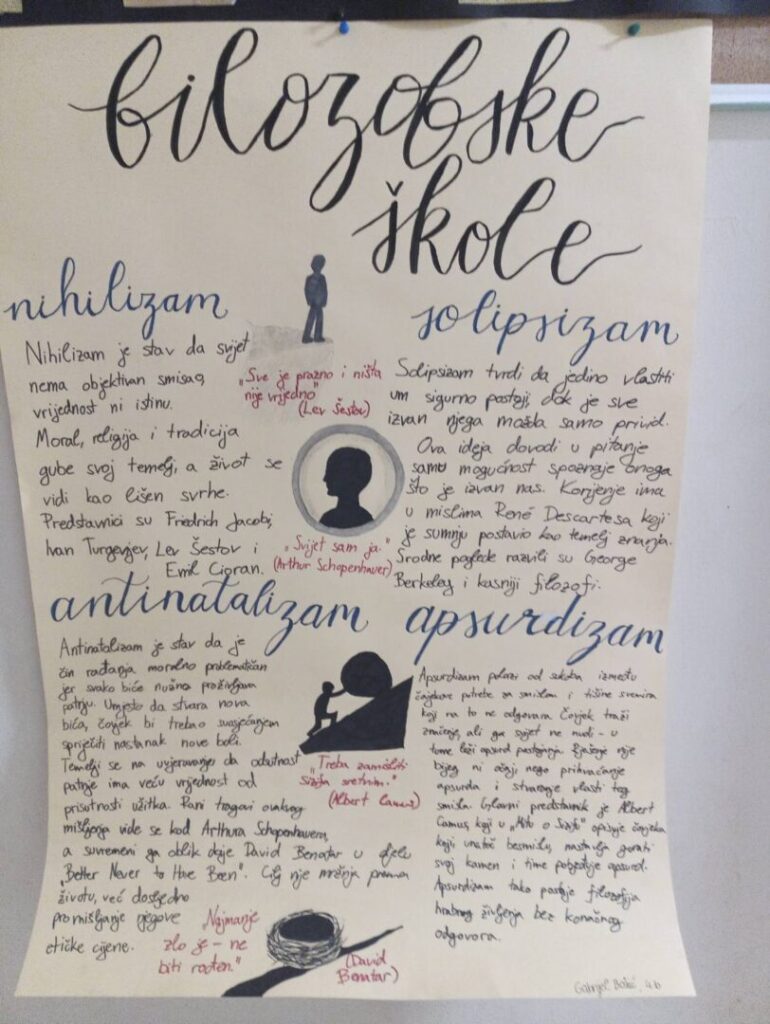 filozofske
škole
nihilizam
Nihilizam je stav da svijet
nema objektivan smisao,
vrijednost ni istinu.
Moral, religija i tradicija
gube svoj temelj, a život se
vidi kao lišen svrhe.
Predstavnici su Friedrich Jacobi,
Ivan Turgenjev, Lev Šestov i
Emil Cioran.
„Sve je prazno i ništa
nije vrijedno"
(Lev Šestov)
solipsizam
Solipsizam tvrdi da jedino vlastiti
um sigurno postoji, dok je sve
izvan njega možda samo privid.
Ova ideja dovodi u pitanje
samu mogućnost spoznaje onoga
što je izvan nas. Korijenje ima
u mislima René Descartesa koji
je sumnju postavio kao temelj znanja.
Srodne poglede razvili su George
Berkeley i kasniji filozofi.
„Svijet sam ja."
(Arthur Schopenhauer)
antinatalizam
Antinatalizam je stav da je
čin rađanja moralno problematičan
jer svako biće nužno proživljava
patnju. Umjesto da stvara nova
bića, čovjek bi trebao suosjećanjem
spriječiti nastanak nove boli.
Temelji se na uvjeravanju da odsutnost
patnje ima veću vrijednost od
prisutnosti užitka. Rani tragovi ovakvog
mišljenja vide se kod Arthura Schopenhauera,
a suvremeni ga oblik daje David Benatar u djelu
„Better Never to Have Been". Cilj nije mržnja prema
životu, već dosljedno
promišljanje njegove
etičke cijene.
„Najmanje
zlo je - ne
biti rođen."
(David
Benatar)
„Treba zamisliti
Sizifa sretnim."
(Albert Camus)
apsurdizam
Apsurdizam polazi od sukoba između
čovjekove potrebe za smislom i tišine svemira
koji na to ne odgovara. Čovjek traži
značenje, ali ga svijet ne nudi - u
tome leži apsurd postojanja. Rješenje nije
bijeg ni očaj, nego prihvaćanje
apsurda i stvaranje vlastitog
smisla. Glavni predstavnik je Albert
Camus, koji u „Mitu o Sizifu" opisuje čovjeka
koji unatoč besmislu, nastavlja gurati
svoj kamen i time pobjeđuje apsurd.
Apsurdizam tako postaje filozofija
hrabrog življenja bez konačnog
odgovora.
4.b